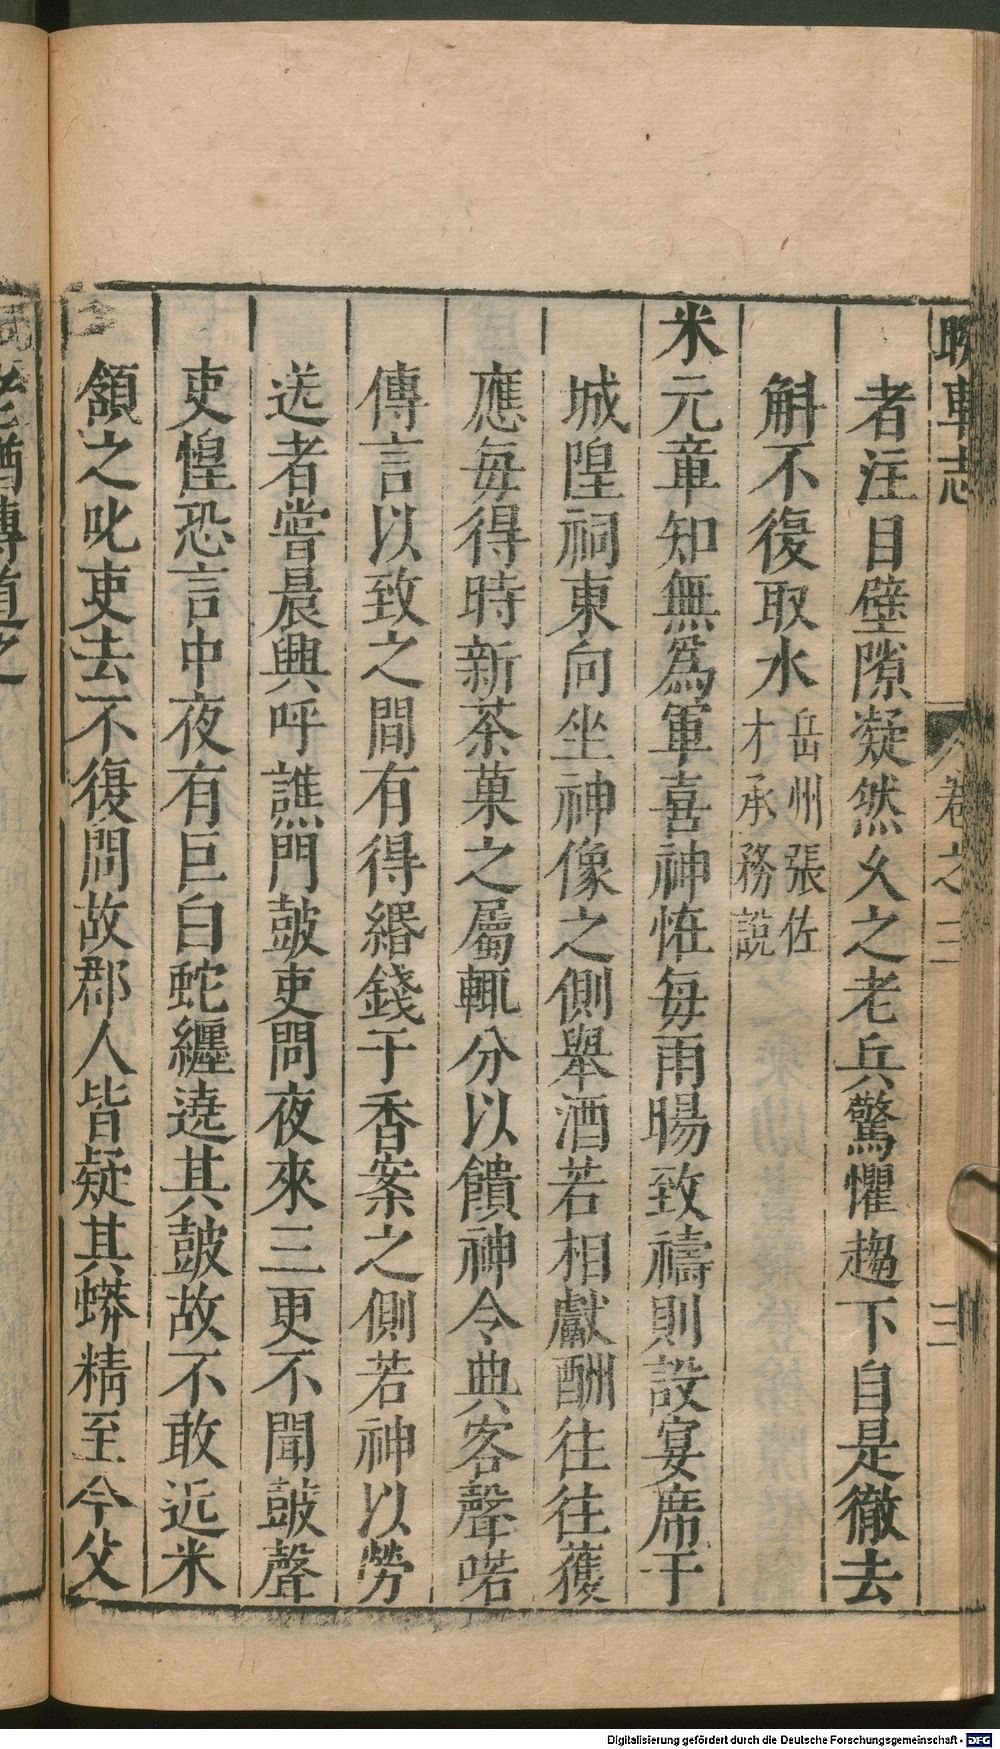 睽車志 卷之三 三
者注目壁隙凝然久之老兵驚懼趨下自是徹去
斛不復取水岳州張佐才承務說
米元章知無爲軍喜神恠每雨暘致禱則設宴席于
城隍祠東向坐神像之側舉酒若相獻酬往往獲
應每得時新茶菓之屬輒分以饋神令典客聲喏
傳言以致之間有得緡錢于香案之側若神以勞
送者嘗晨興呼譙門鼓吏問夜來三更不聞鼓聲
吏惶恐言中夜有巨白蛇纏遶其鼓故不敢近米
頷之叱吏去不復問故郡人皆疑其蟒精至今父
老猶傳道之
Digitalisierung gefördert durch die Deutsche Forschungsgemeinschaft - DFG